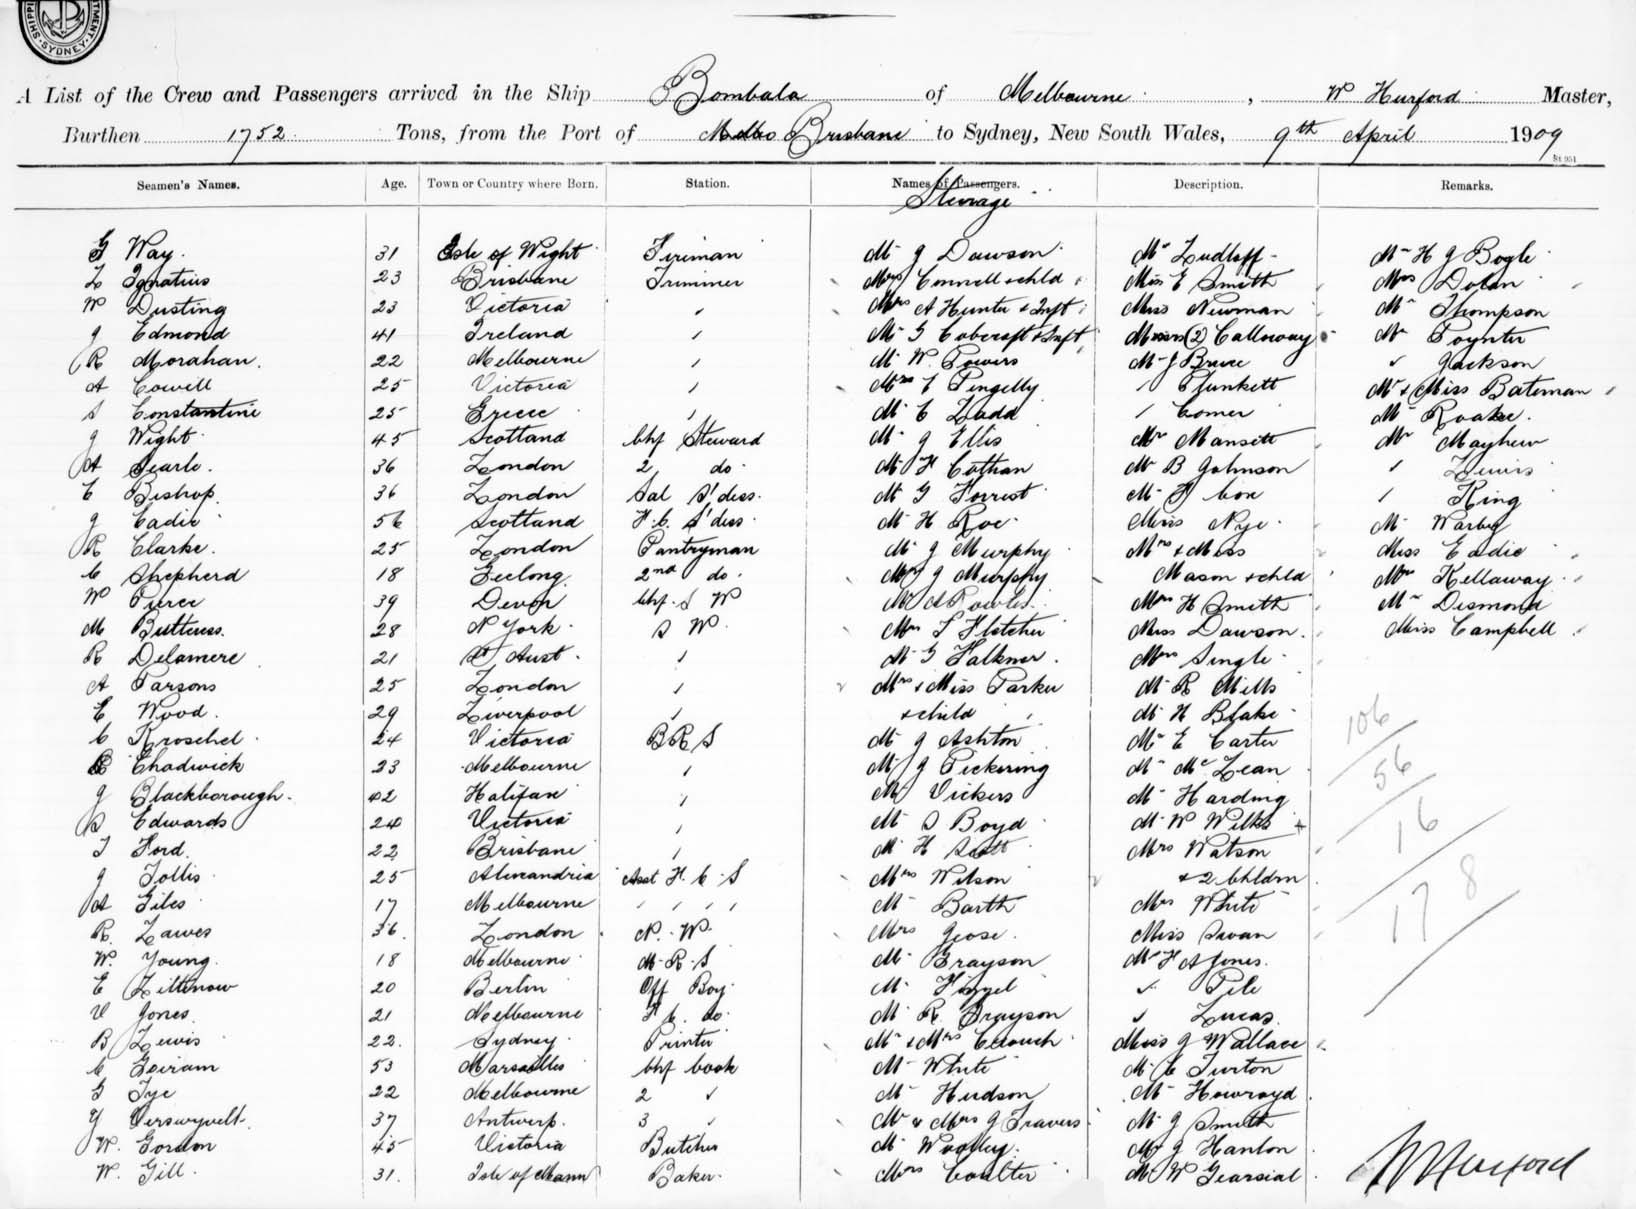 SYDNEY
A List of the Crew and Passengers arrived in the Ship Bombala of Melbourne, W Hurford Master,
Burthen 1752 Tons, from the Port of Melbo Brisbane to Sydney, New South Wales, 9th April 1909
St 951
Seamen's Names. Age. Town or Country where Born. Station. Names of Passengers. Description. Remarks.
Steerage
G Way 31 Isle of Wight Fireman Mr J Dawson Mr Ludloff Mr H J Bogle
L Ignatius 23 Brisbane Trimmer Mrs Connell + chld Miss E Smith Mrs Dolan
W Dusting 23 Victoria " Mrs A Hunter + Inft Miss Newman Mr Thompson
J Edmond 41 Ireland " Mr G Cobcroft + Inft Misses (2) Calloway Mr Poynter
R Morahan. 22 Melbourne " Mr W. Powers Mr J Bruce " Jackson
A Cowell 25 Victoria " Mrs L Pengelly " Plunkett Mr + Miss Bateman
S Constantine 25 Greece " Mr C Ladd " Comer Mr Roake.
J Wight 45 Scotland chf Steward Mr J Ellis Mr Mansett Mr Mayhew
A Searle. 36 London 2 do. Mr H Cathan Mr B Johnson " Lewis
C Bishop 36 London Sal S'dess. Mr G Forrest Mr F Cox " King
J Eadie 56 Scotland F. C. S'dess Mr H Roe Miss Nye Mr Warby
R Clarke. 25 London Pantryman Mr J Murphy Mrs + Miss Miss Eadie
C Shepherd 18 Geelong 2nd do. Mrs J Murphy Mason + chld Mrs Kellaway
W Pierce 39 Devon chf. S W Mr A Rowles Mrs H Smith Mr Desmond
M Buttress. 28 N York S W. Mrs S Fletcher Miss Dawson. Miss Campbell
R Delamere 21 Aust. " Mr G Falkner. Mrs Single
A Parsons 25 London " Mrs + Miss Parker Mr R Mills
E Wood. 29 Liverpool " + child Mr H Blake
C Kroschel 24 Victoria B R S Mr J Ashton Mr E Carter
Chadwick 23 Melbourne " Mr J Pickering Mr McLean
J Blackborough. 42 Halifax " Mr Vickers Mr Harding
S Edwards 24 Victoria " Mr S Boyd Mr W Wilks +
T Ford 22 Brisbane " Mr H Scott Mrs Watson
J Tollis 25 Alexandria Asst F. C. S Mrs Wilson + 2 Chldrn
A Giles 17 Melbourne " " " " Mr Barth Mrs White
R. Lawes 36. London N. W. Mrs Geose. Miss Swan
W. Young. 18 Melbourne M. R. S Mr Grayson Mr F A Jones.
E Litknow 20 Berlin Off Boy Mr " Pile
V Jones 21 Melbourne F C. do. Mr R. Grayson " Lucas
B Lewis 22. Sydney Printer Mr + Mrs Crouch Miss J Wallace
C Geiram 53 Marsailles chf cook Mr White Mr C Turton
G Tye 22 Melbourne 2 " Mr Hudson Mr Howroyd
Y Verswyvelt 37 Antwerp. 3 " Mr + Mrs J Travers Mr J Smith
W. Gordon 45 Victoria Butcher Mr Woolley. Mr J Hanlon
W. Gill 31. Isle of Mann Baker. Mrs Coulter Mr W Gearsial
106
56
16
178
W Hurford